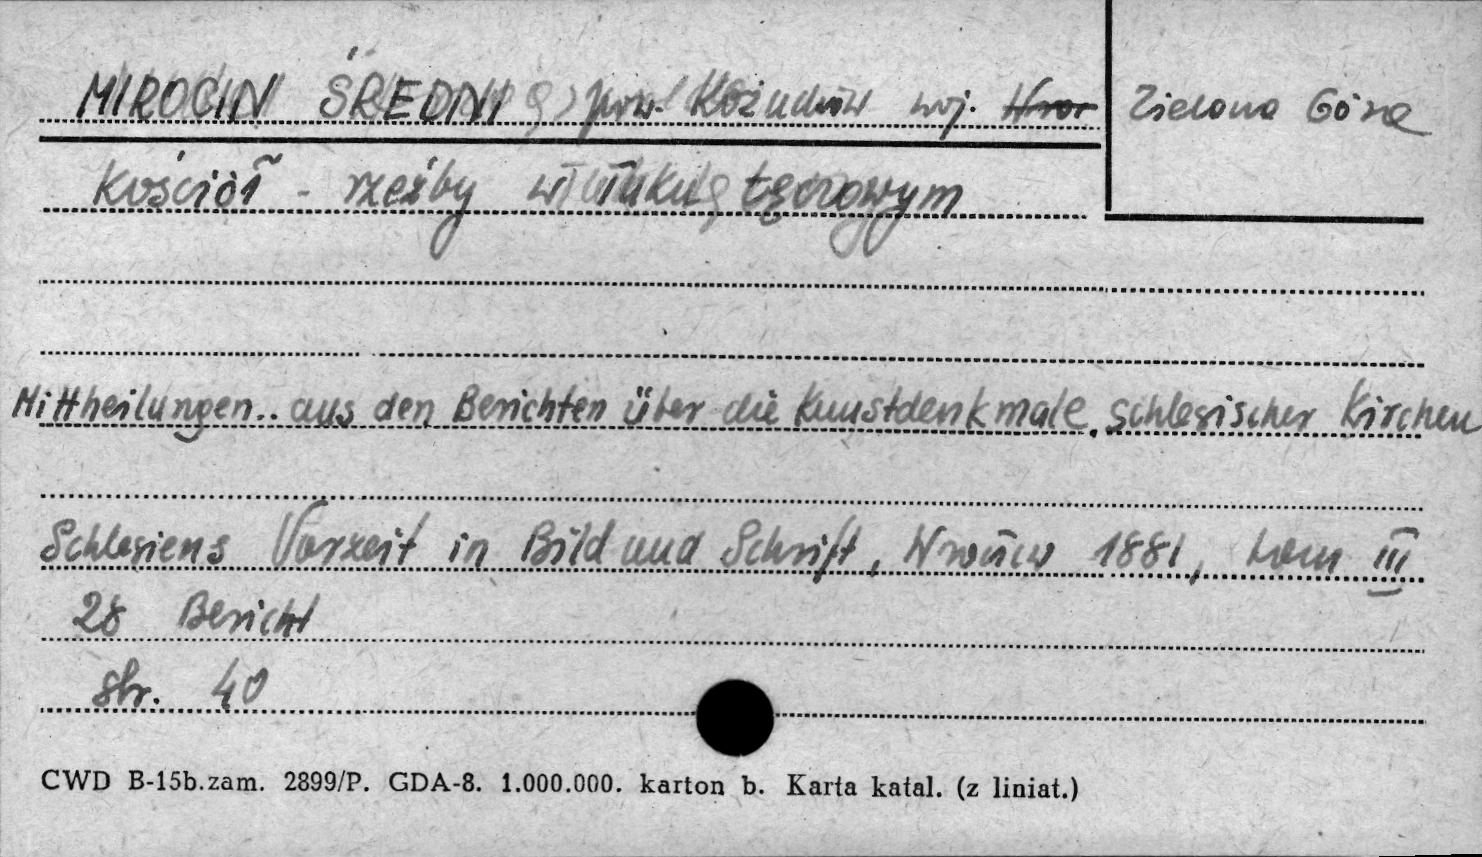 MIROCIN ŚREDNI, pow. Kożuchów woj. Zielona Góra
Kościół - rzeźby w łuku tęczowym
Mittheilungen.. aus den Berichten über die Kunstdenkmale schlesischer Kirchen
Schlesiens Vorzeit in Bild und Schrift, Wrocław 1881, tom III
28 Bericht
str. 40
CWD B-15b.zam. 2899/P. GDA-8. 1.000.000. karton b. Karta katal. (z liniat.)